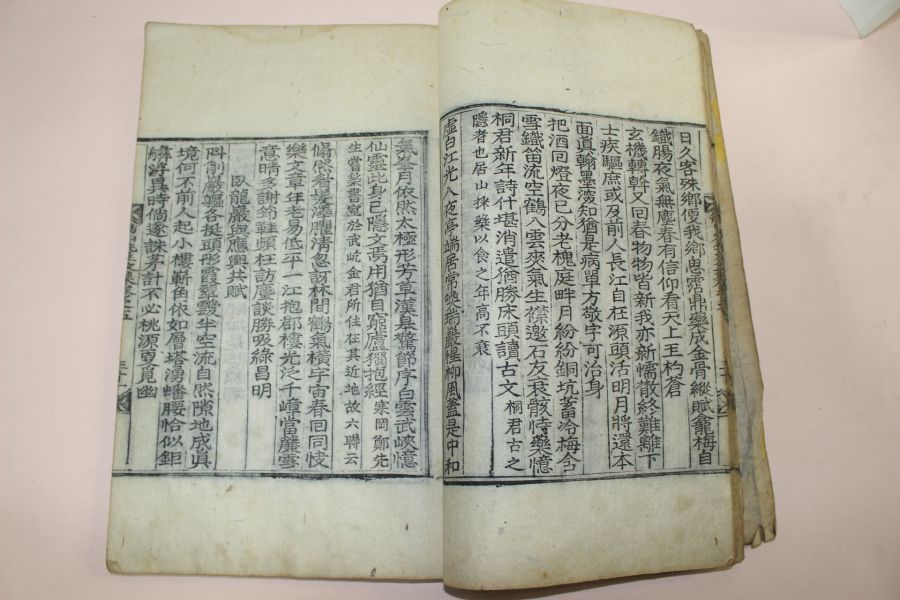 日久客殊鄉便我鄉思霑鼎藥成金骨縱賦龕梅自
鐵腸夜氣無塵春有信仰看天上玉杓蒼
玄機轉斡又回春物物皆新我亦新懦散終難離下
士疾驅庶或及前人長江自在源頭活明月將還本
面真翰墨深知猶是病單方敬字可治身
把酒回燈夜已分老槐庭畔月紛紛銅坑蓄冷梅含
雪鐵笛流空鶴八雲爽氣生襟邀石友衰骸恃藥憶
桐君新年詩什堪消遣猶勝床頭讀古文 桐君古之
隱者也居山採藥以食之年高不衰
虛白江光入夜亭端居常喚翁巖惺柳風蓋是中和
氣梨月依然太極形芳草漢皐驚節序白雲武峽憶
仙靈此身已隱文焉用猶自窮廬獨抱經 寒岡鄭先
生嘗築書室於武屹金君所住在其近地故六聯云
翛然着處澤臞清忽訝林間鶴氣橫宇宙春回同忮
樂文章年老易低平一江抱郡樓光泛千嶂當簾雲
意晴多謝筇鞋頻枉訪塵談勝吸綠昌明
臥龍巖與應輿共賦
斗削巖軀各挺頭彤霞翠靉半空流自然隙地成眞
境何不前人起小樓嶄角依如層塔湧蟠腰恰似鉅
觴浮異時倘遂誅茅計不必桃源更覓幽